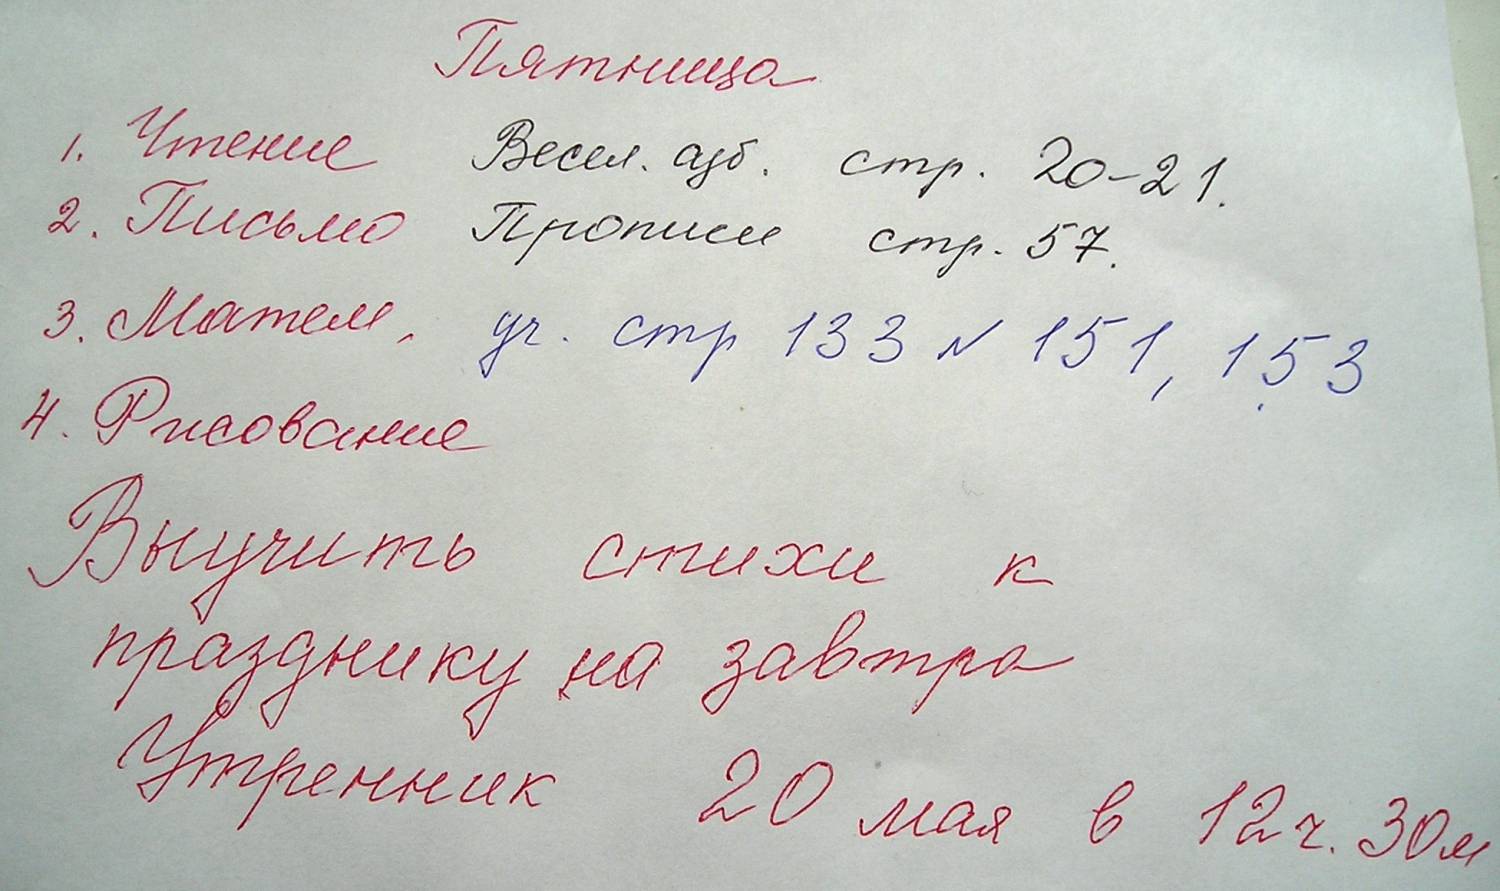 Пятница
1. Чтение Весел. азб. стр. 20-21.
2. Письмо Прописи стр. 57.
3. Матем. уч. стр 133 N 151, 153
4. Рисование
Выучить стихи к
празднику на завтра
Утренник 20 мая в 12 ч. 30 м